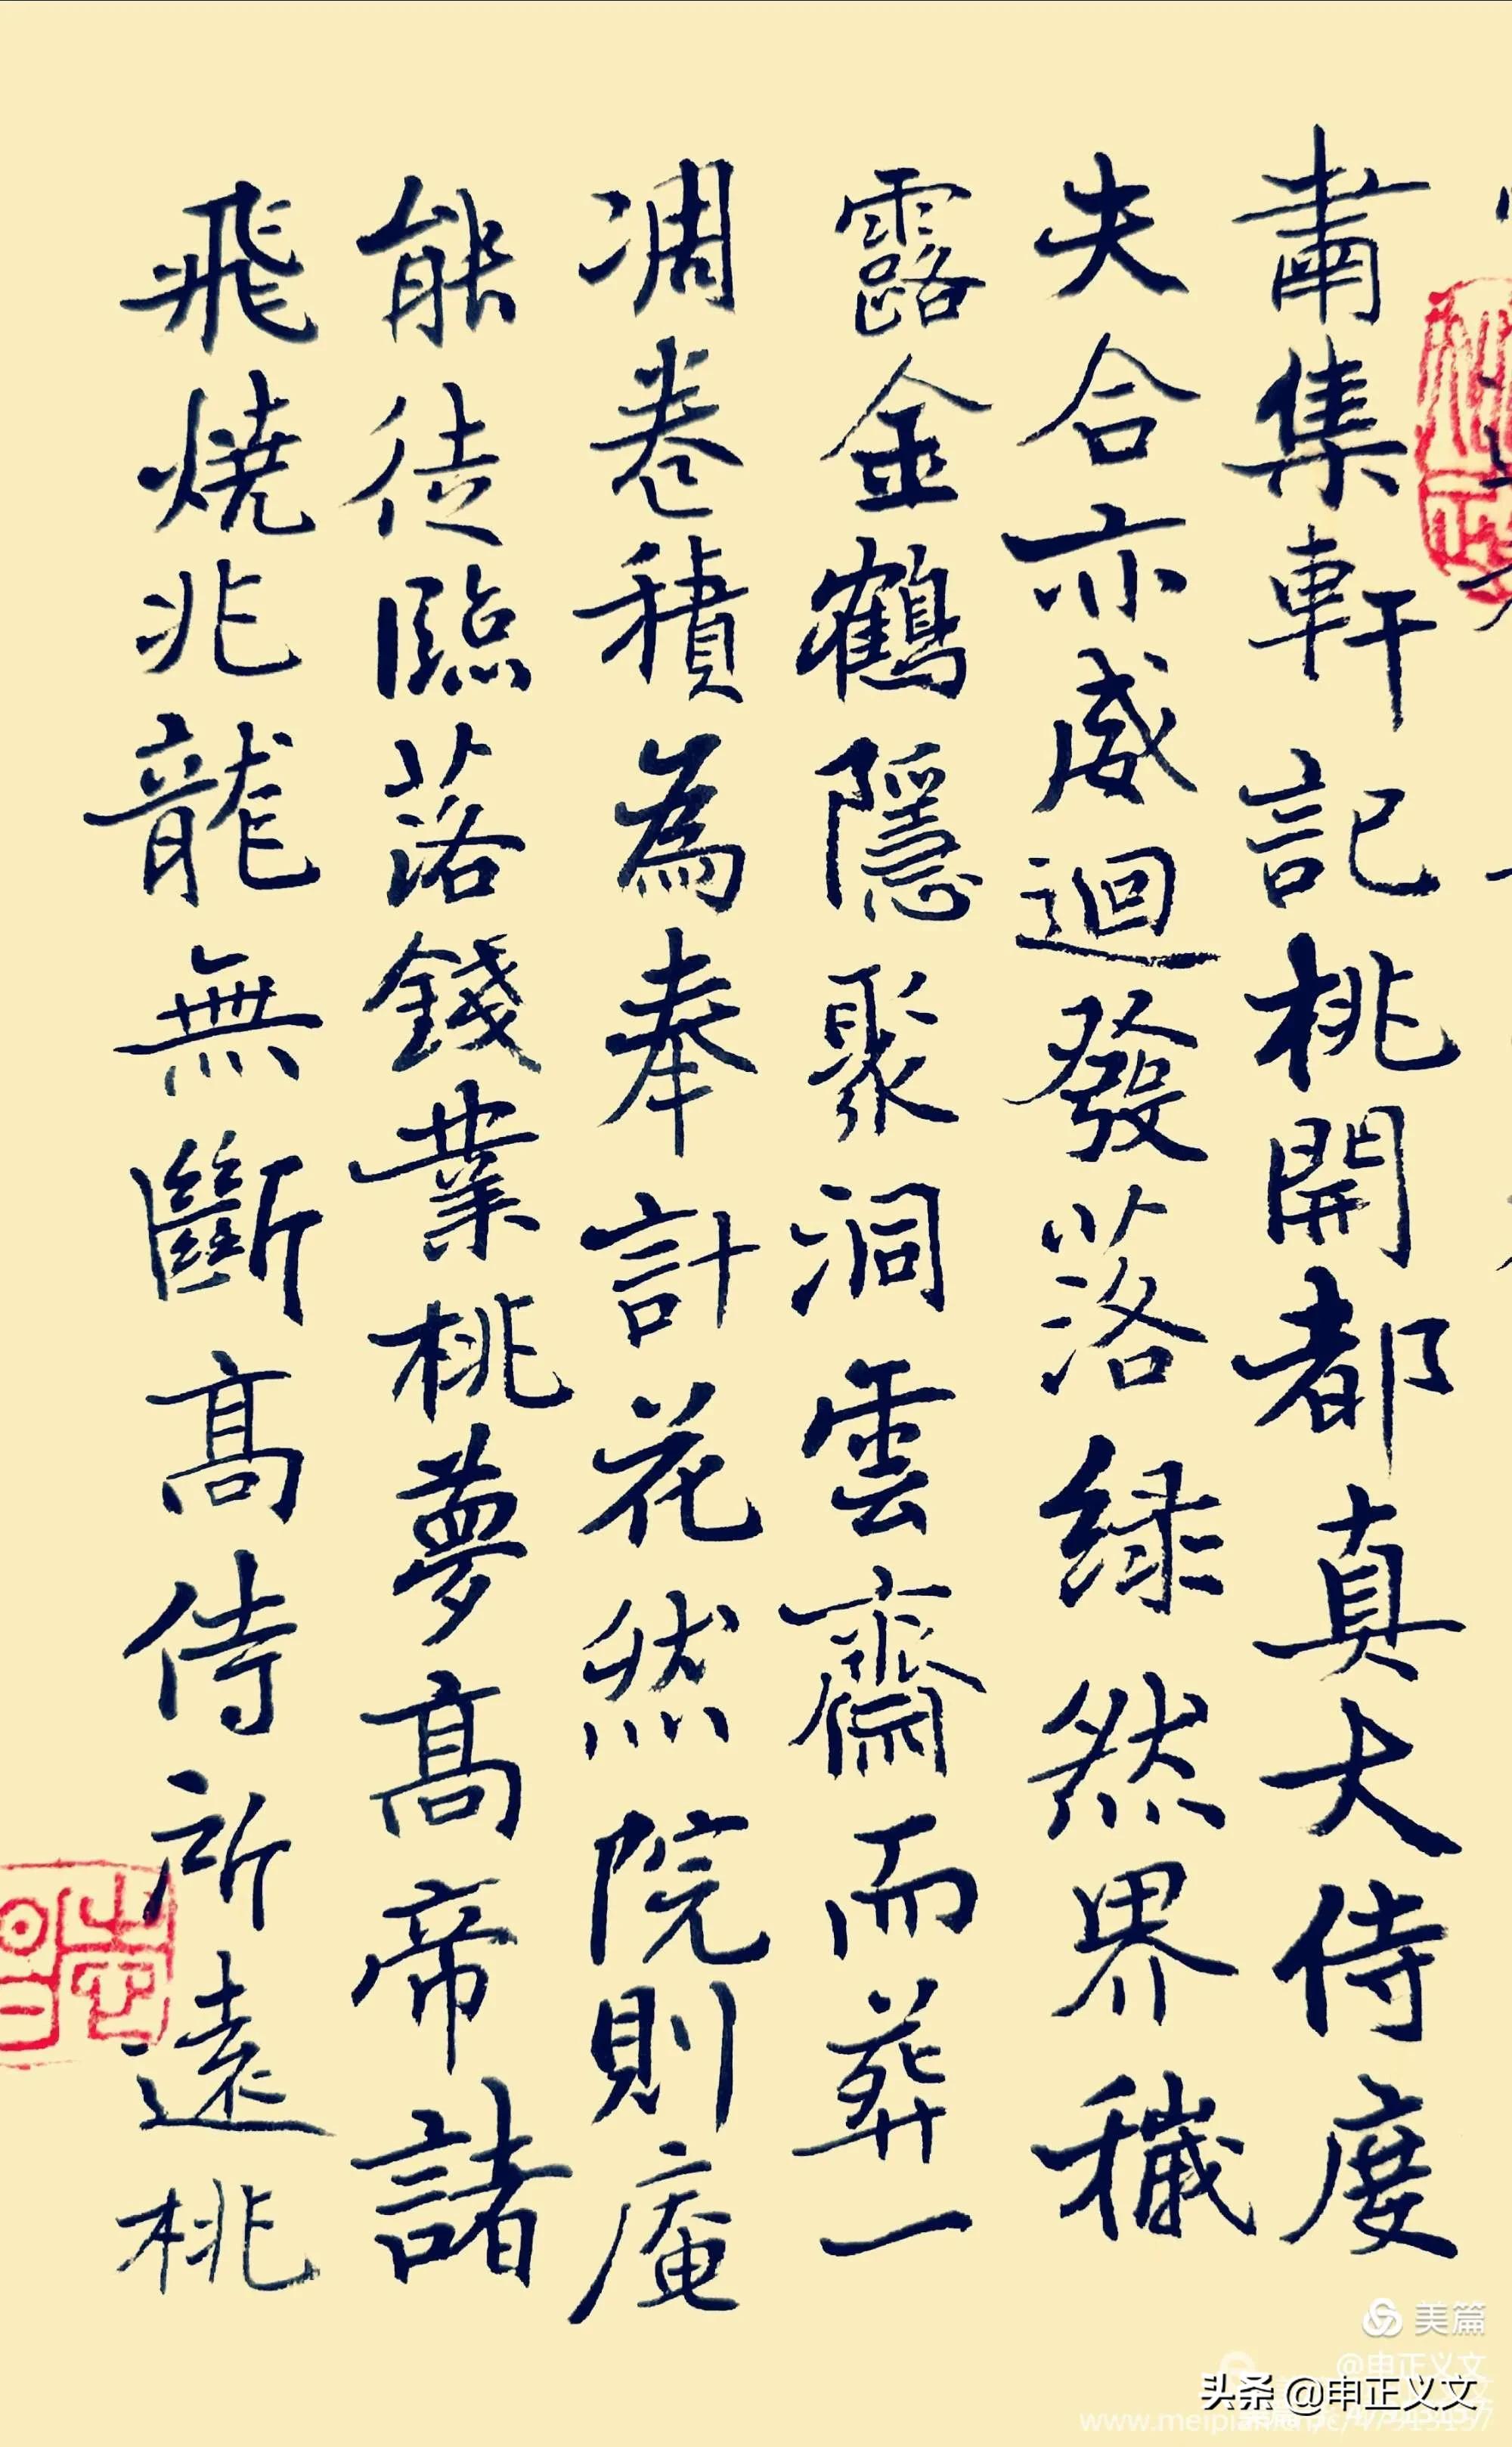 肅集軒記桃開都真大侍度
夫合亦威迴發落綠然界穢
露金鶴隱聚洞雲齋而葬一
凋卷積為奉計花然院則庵
能徒臨落錢業桃夢高帝諸
飛燒兆龍無斷高侍所遠桃
美篇
@申正义文
头条 @申正义文